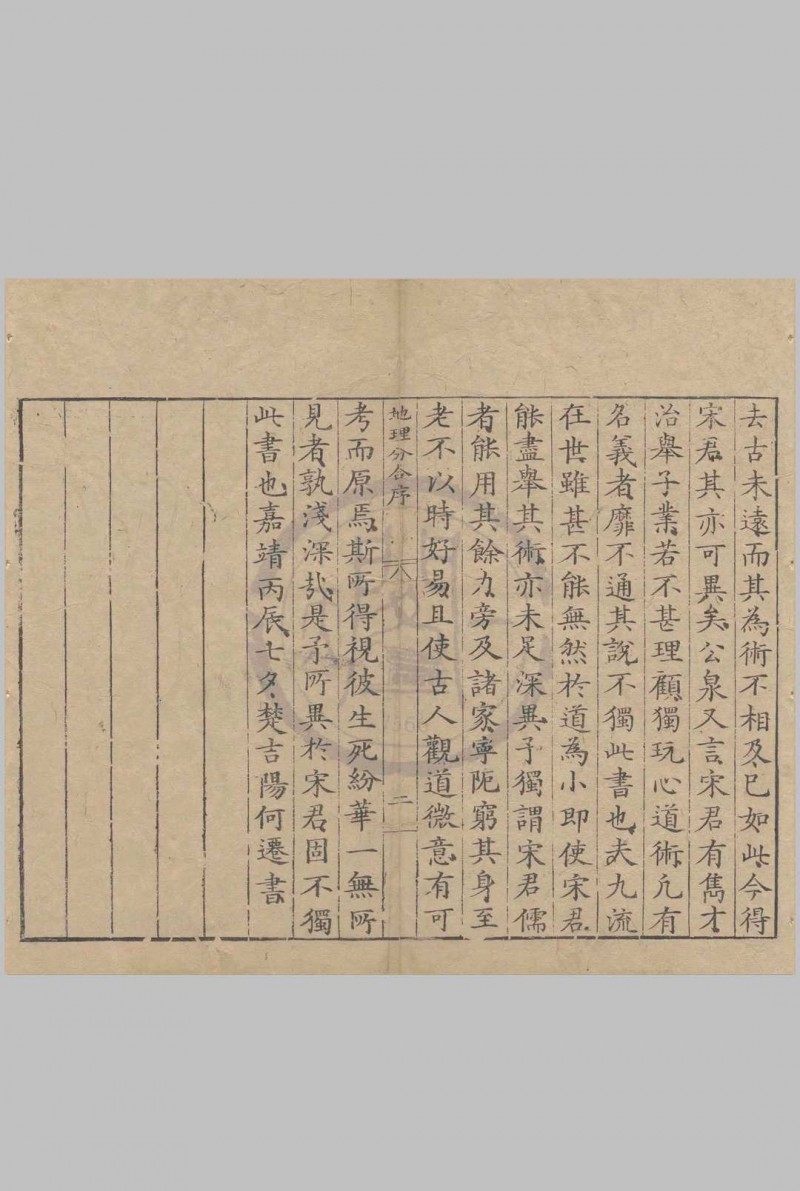 去古未遠而其為術不相及已如此今得
宋君其亦可異矣公泉又言宋君有雋才
治舉子業若不甚理顧獨玩心道術凡有
名義者靡不通其說不獨此書也夫九流
在世雖甚不能無然於道為小即使宋君
能盡舉其術亦未足深異予獨謂宋君儒
者能用其餘力旁及諸家寧阨窮其身至
老不以時好易且使古人觀道微意有可
地理分合序
二
考而原焉斯所得視彼生死紛華一無所
見者孰淺深哉是予所異於宋君固不獨
此書也嘉靖丙辰七夕楚吉陽何遷書